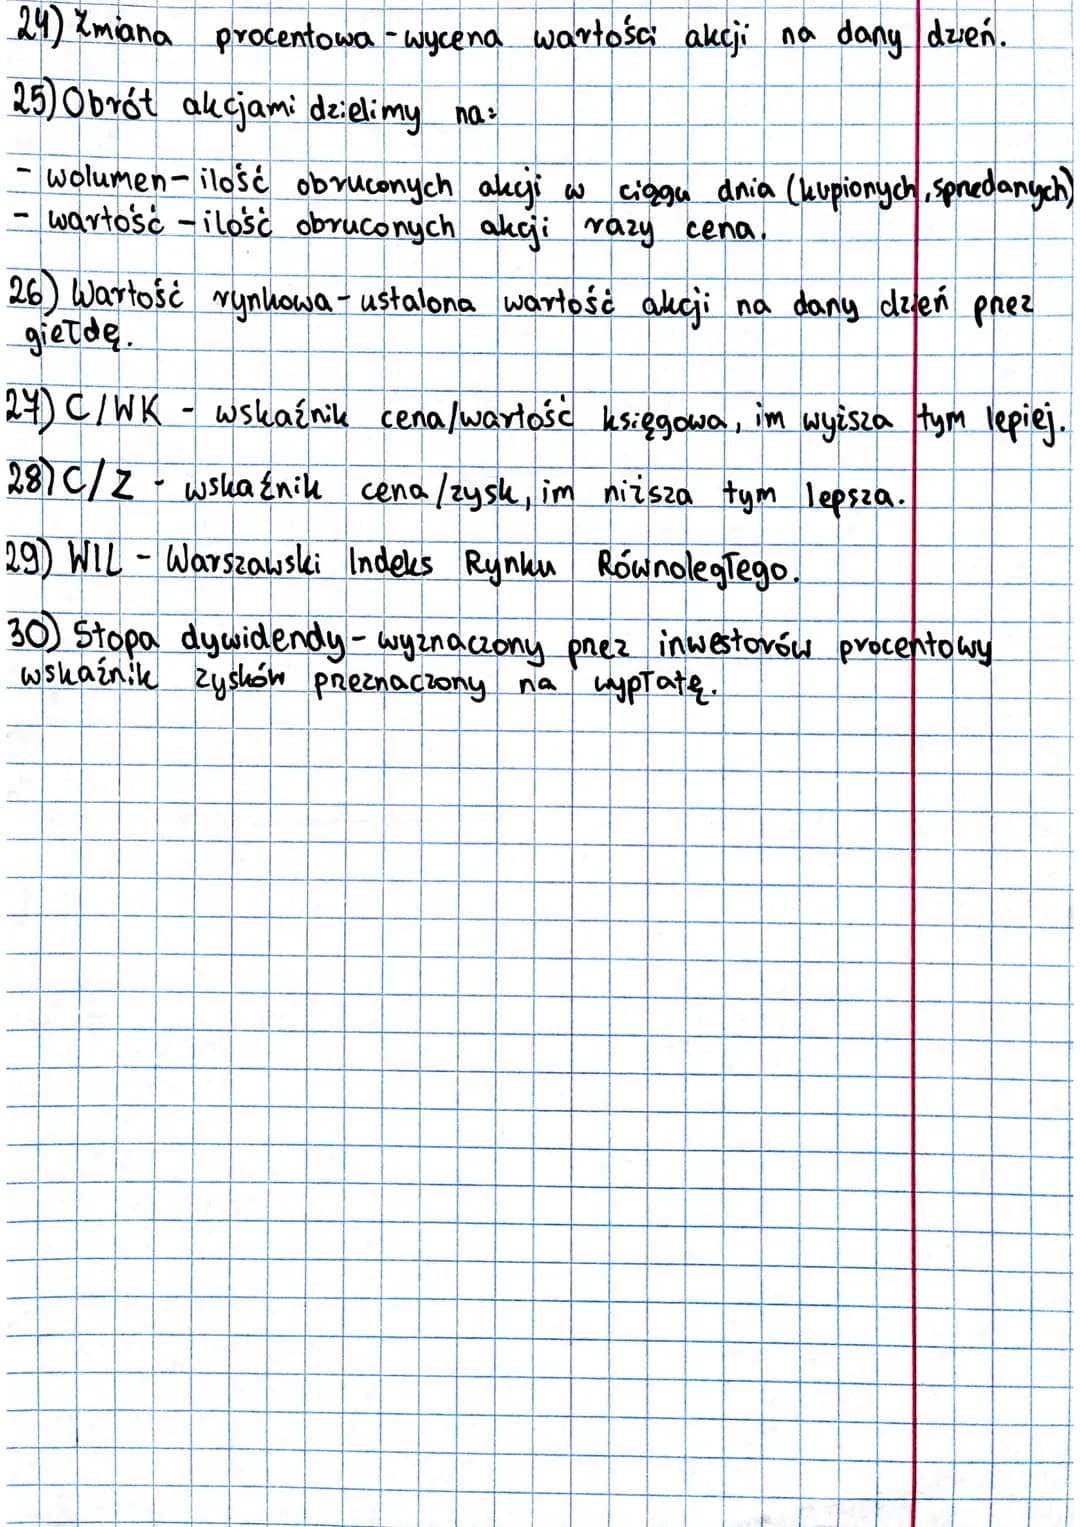 24) Zmiana procentowa - wycena wartości akcji na dany dzień.
25) Obrót akcjami dzielimy na:
- wolumen - ilość obruconych akcji w ciągu dnia (kupionych, sprzedanych)
- wartość - ilość obruconych akcji razy cena.
26) Wartość rynkowa - ustalona wartość akcji na dany dzień przez
giełdę.
27) C/WK - wskaźnik cena/wartość księgowa, im wyższa tym lepiej.
28) C/Z - wskaźnik cena/zysk, im niższa tym lepsza.
29) WIL - Warszawski Indeks Rynku Równoległego.
30) Stopa dywidendy - wyznaczony przez inwestorów procentowy
wskaźnik zysków przeznaczony na wypłatę.